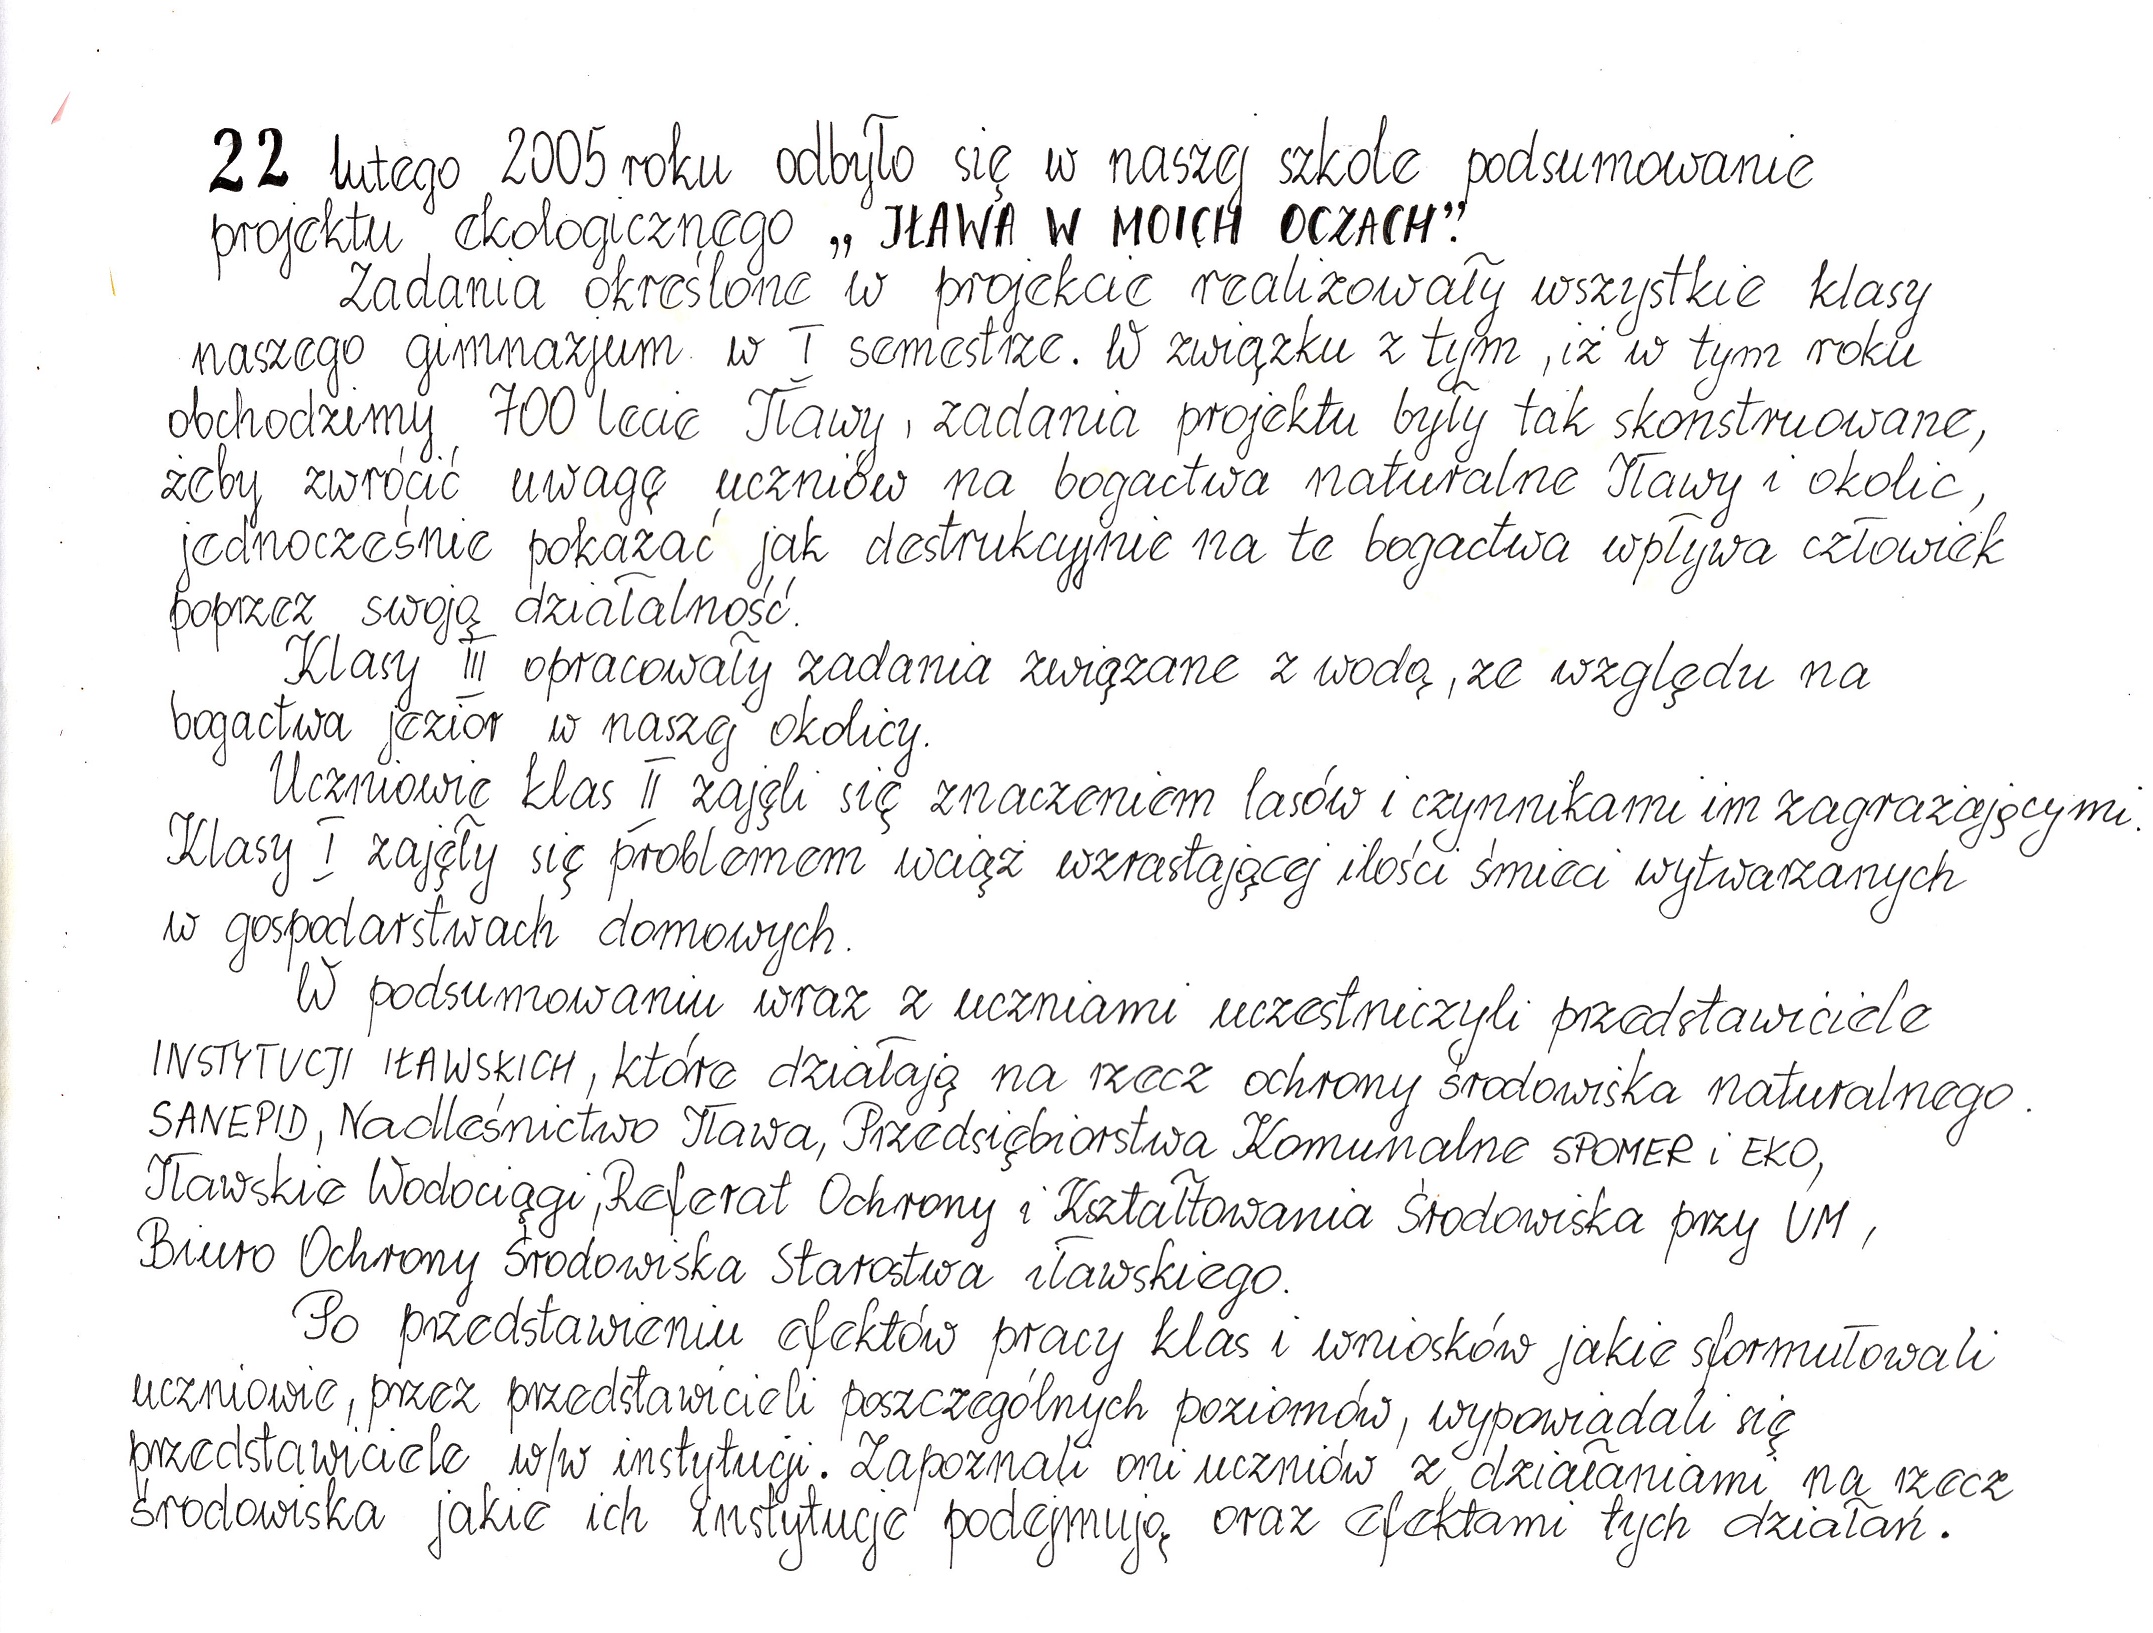 22 lutego 2005 roku odbyło się w naszej szkole podsumowanie
projektu ekologicznego „IŁAWA W MOICH OCZACH".
Zadania określone w projekcie realizowały wszystkie klasy
naszego gimnazjum w I semestrze. W związku z tym, iż w tym roku
obchodzimy 700 lecie Iławy, zadania projektu były tak skonstruowane,
żeby zwrócić uwagę uczniów na bogactwa naturalne Iławy i okolic,
jednocześnie pokazać jak destrukcyjnie na te bogactwa wpływa człowiek
poprzez swoją działalność.
Klasy III opracowały zadania związane z wodą, ze względu na
bogactwa jezior w naszej okolicy.
Uczniowie klas II zajęli się znaczeniem lasów i czynnikami im zagrażającymi.
Klasy I zajęły się problemem wciąż wzrastającej ilości śmieci wytwarzanych
w gospodarstwach domowych.
W podsumowaniu wraz z uczniami uczestniczyli przedstawiciele
INSTYTUCJI IŁAWSKICH, które działają na rzecz ochrony środowiska naturalnego.
SANEPID, Nadleśnictwo Iława, Przedsiębiorstwa Komunalne SPOMER i EKO,
Iławskie Wodociągi, Referat Ochrony i Kształtowania Środowiska przy UM,
Biuro Ochrony Środowiska Starostwa iławskiego.
Po przedstawieniu efektów pracy klas i wniosków jakie sformułowali
uczniowie, przez przedstawicieli poszczególnych poziomów, wypowiadali się
przedstawiciele w/w instytucji. Zapoznali oni uczniów z działaniami na rzecz
środowiska jakie ich instytucje podejmują oraz efektami tych działań.